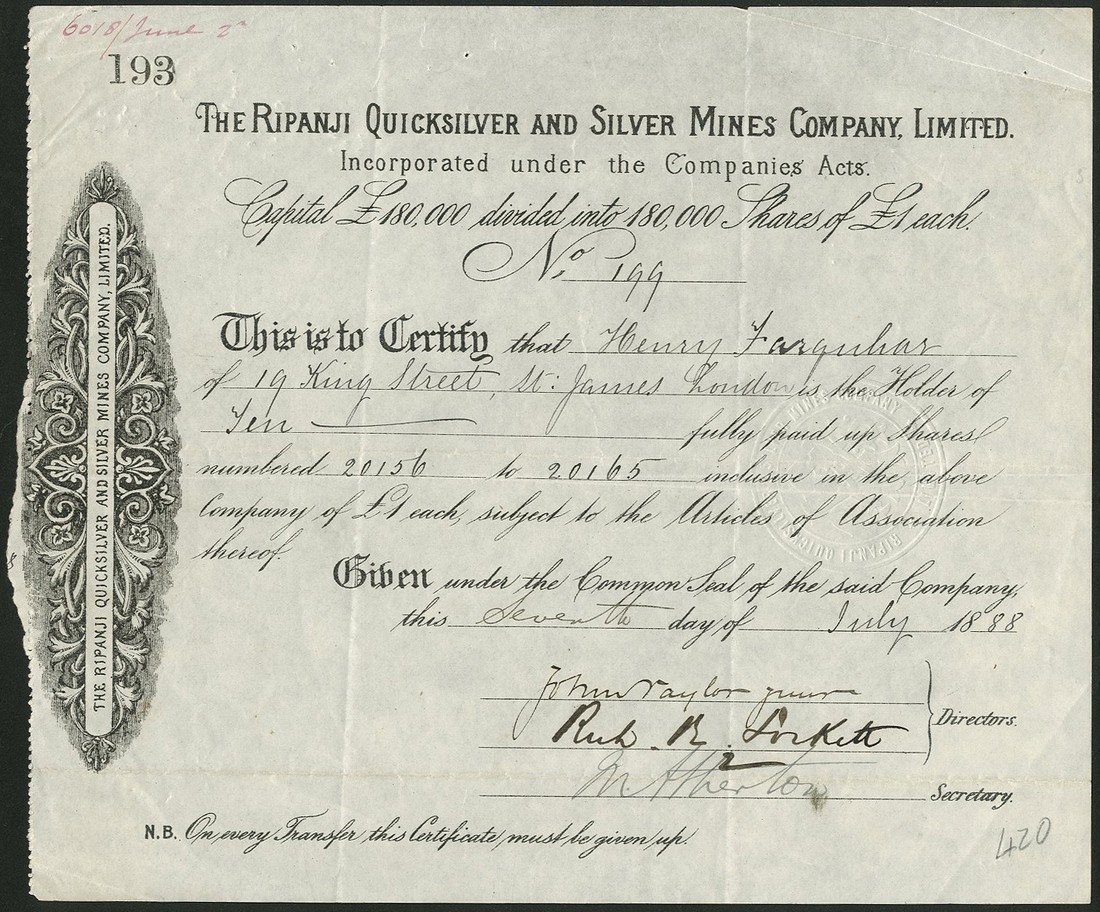 6018/June 2
193
THE RIPANJI QUICKSILVER AND SILVER MINES COMPANY, LIMITED.
Incorporated under the Companies Acts.
Capital £180,000 divided into 180,000 Shares of £1 each.
No. 199
This is to Certify that Henry Farquhar
of 19 King Street, St. James London is the Holder of
Ten fully paid up Shares
numbered 20156 to 20165 inclusive in the above
Company of £1 each, subject to the Articles of Association
thereof.
Given under the Common Seal of the said Company,
this Seventh day of July 1888
John Taylor junr
Rich. R. Lockett
Directors.
Atherton
Secretary.
N.B. On every Transfer this Certificate must be given up.
420
THE RIPANJI QUICKSILVER AND SILVER MINES COMPANY, LIMITED.